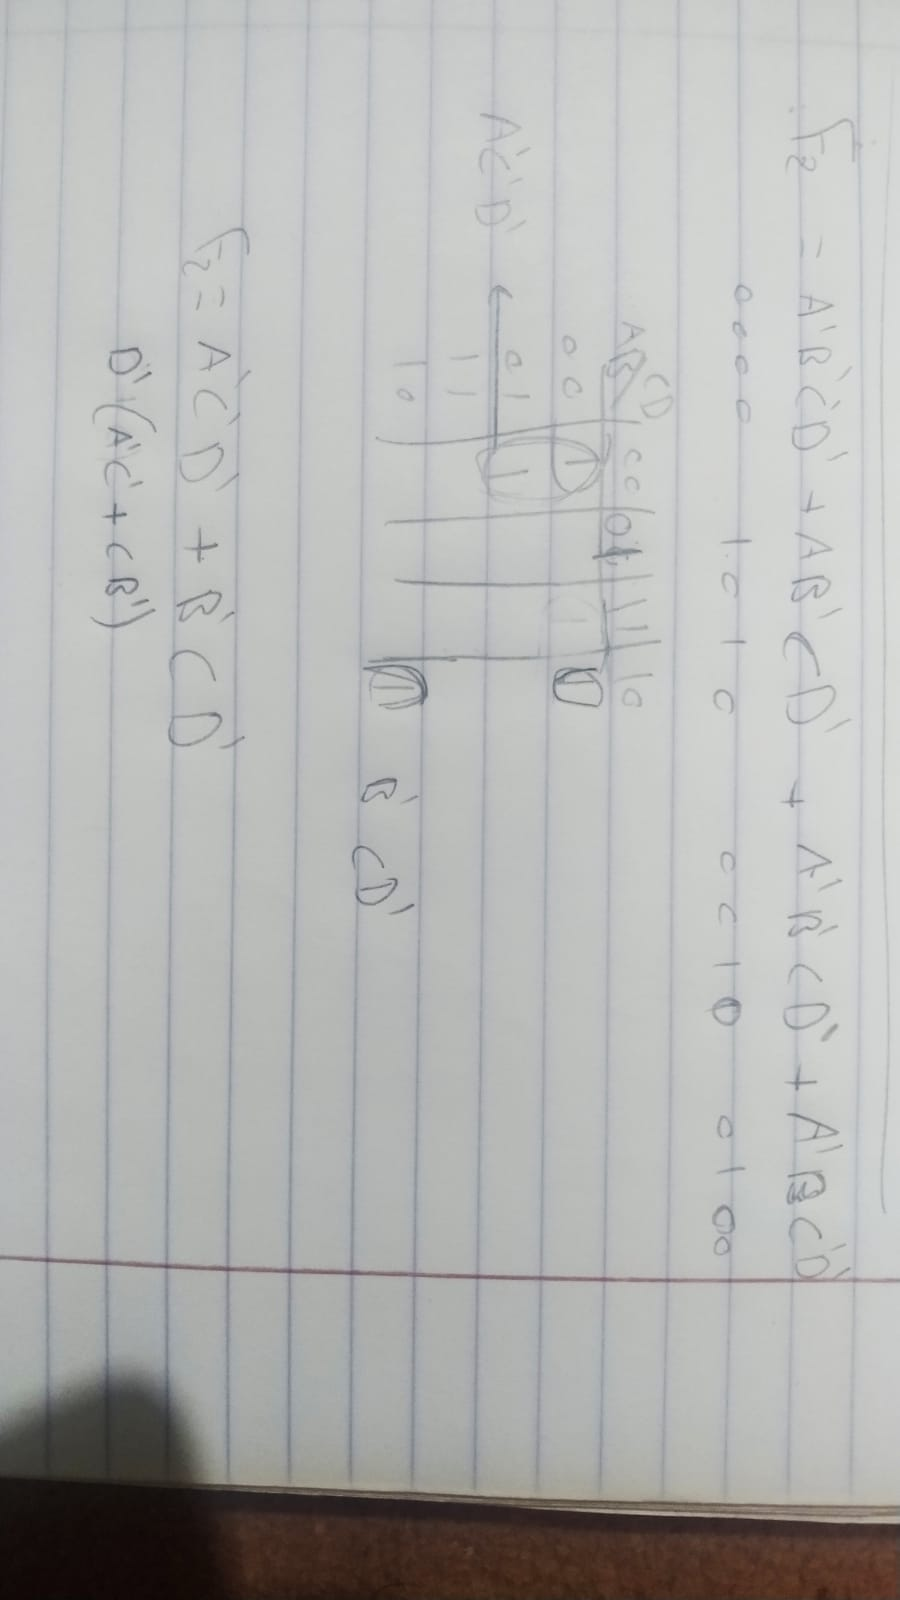 F₂ = A'B'C'D' + AB'CD' + A'B'CD' + A'BC'D'
0000 1010 0010 0100
CD
AB 00 01 11 10
00 1 1
01 1
11
10 1
A'C'D'
B'CD'
F₂ = A'C'D' + B'CD'
D'(A'C' + CB')